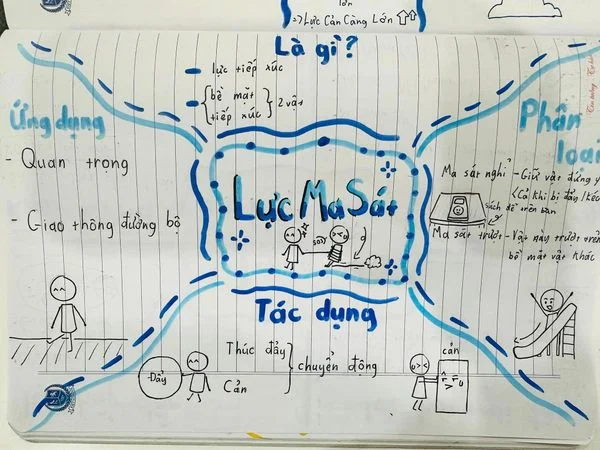 lớn
=> Lực Cản Càng Lớn ⇧⇧
Là gì?
- lực tiếp xúc
- { bề mặt
tiếp xúc } 2 vật
Ứng dụng
- Quan trọng
- Giao thông đường bộ
Phân
loại
Ma sát nghỉ - Giữ vật đứng y
(Cả khi bị đẩy/kéo
sách để trên bàn
Ma sát trượt - Vật này trượt trên
bề mặt vật khác
Lực Ma Sát
Tác dụng
Thúc đẩy
Cản } chuyển động
Đẩy
cản